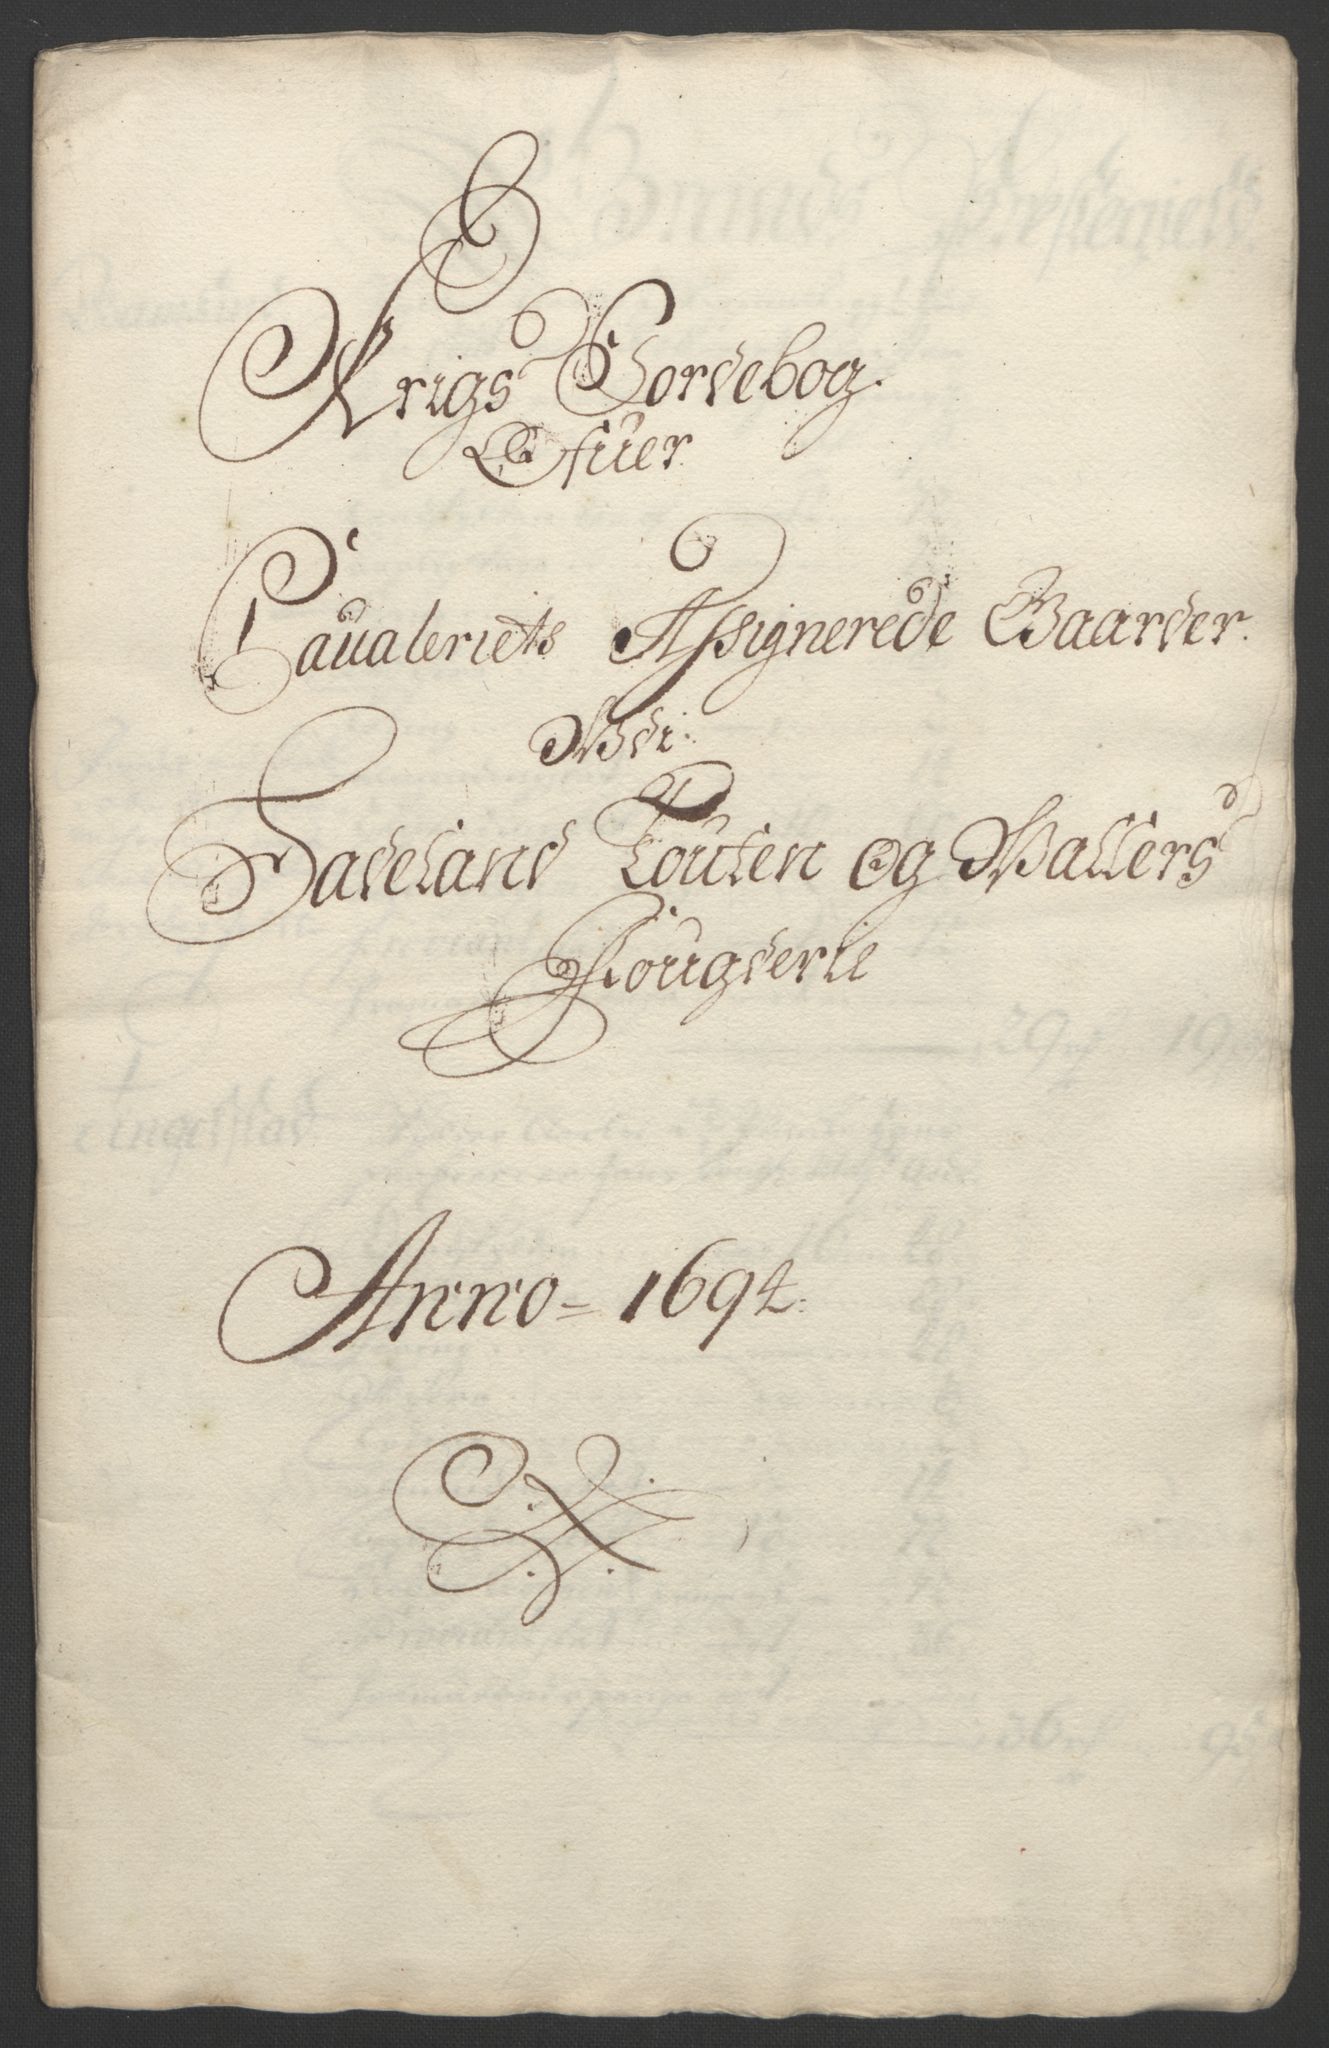 Krigs Jordebog.
Ofuer
Caualeriets Assignerede Gaarder.
Udi
Hadeland Touten og Valders
Fougderie
Anno = 1694.